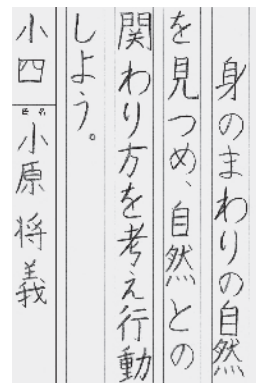 身のまわりの自然
を見つめ、自然との
関わり方を考え行動
しよう。
小四 氏名 小原将義